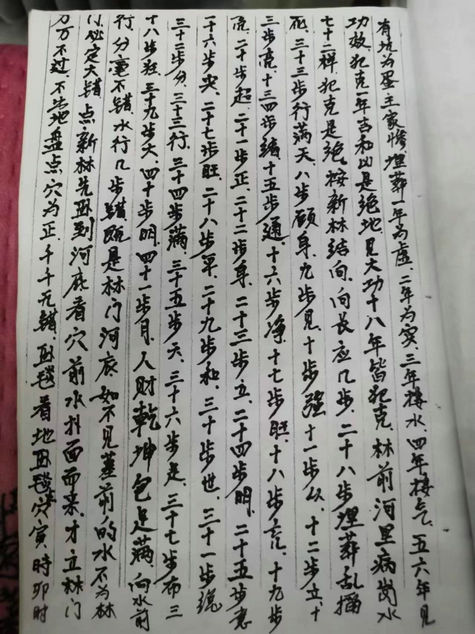 有坑为墨王家惨埋葬一年为虚.二年为实.三年接水.四年接气.五六年见
功效.犯克一年吉和凶是绝地.见大功十八年皆犯克.林前河里病岗水
七十二样.犯克是绝.按新林结向.向长应几步.二十八步埋葬乱插
死.三十三步行满天.八步顾身.九步见.十步强.十一步么.十二步立.十
三步亮.十四步绪.十五步通.十六步净.十七步旺.十八步亮.十九步
亮.二十步起.二十一步正.二十二步身.二十三步立.二十四步明.二十五步意
二十六步尖.二十七步旺.二十八步军.二十九步和.三十步世.三十一步绝
三十二步分.三十三行.三十四步满.三十五步天.三十六步是.三十七步布.三
十八步狂.三十九步大.四十步明.四十一步月.人财乾坤包是满.向水前
行分毫不错.水行几步错既是林门河底.如不见茔前的水不为林
门.必定大错.点新林先丑到河底看穴前水拦面而来才立林门
万万不过.不出地盘点穴为正.千千无错.丑穴看地丑穴.寅時卯时